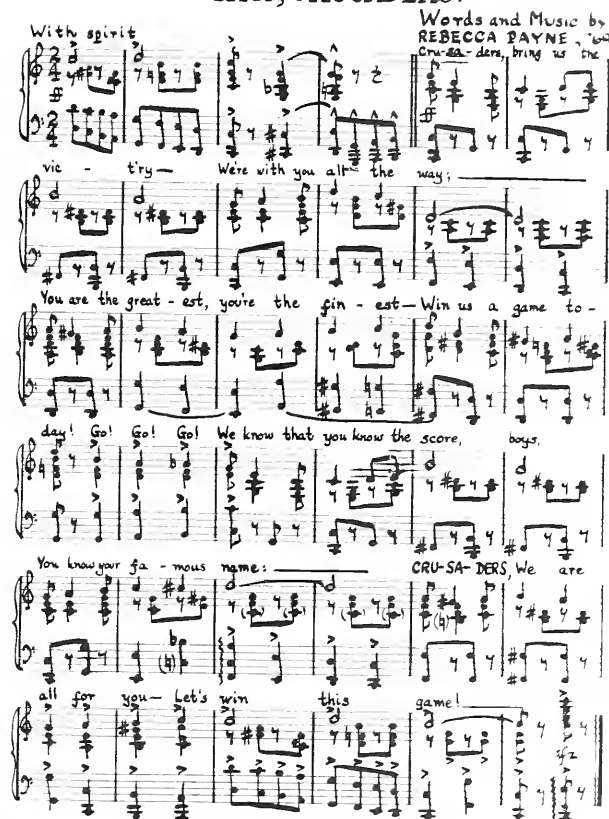 With spirit
Words and Music by
REBECCA PAYNE, '69
Cru-sa-ders, bring us the
vic - t'ry— We're with you all the way;
You are the great-est, you're the fin-est— Win us a game to-
day! Go! Go! Go! We know that you know the score, boys,
You know your fa-mous name: CRU-SA-DERS, We are
all for you— Let's win this game!
sfz